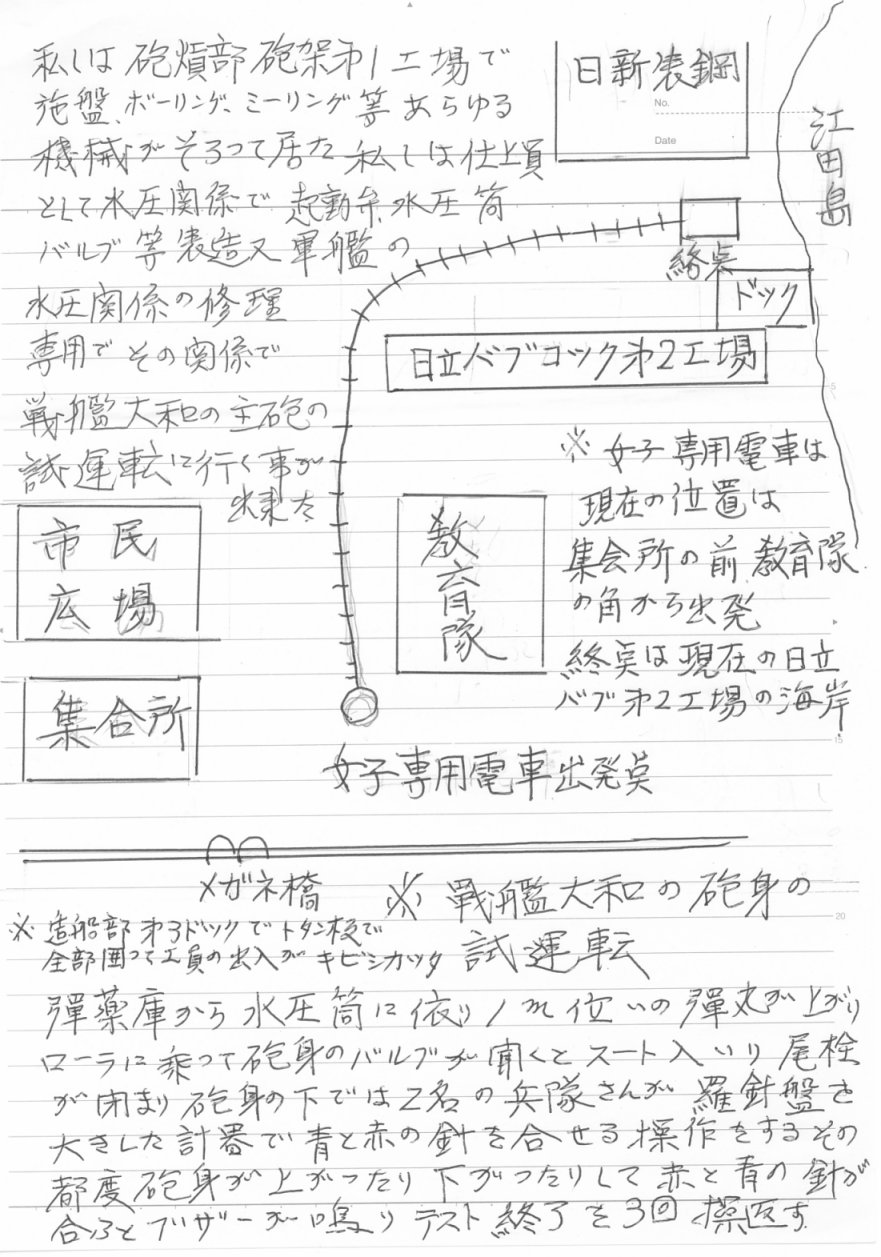 私しは砲熕部砲架第1工場で
施盤、ボーリング、ミーリング等あらゆる
機械がそろって居た 私しは仕上員
として水圧関係で 起動弁 水圧筒
バルブ等表造又軍艦の
水圧関係の修理
専用でその関係で
戦艦大和の主砲の
試運転に行く事が
出来た
日新表鋼
No.
Date
江田島
終点
ドック
日立バブコック第2工場
※女子専用電車は
現在の位置は
集会所の前 教育隊
の角から出発
終点は現在の日立
バブ第2工場の海岸
市民
広場
教育隊
集合所
女子専用電車出発点
メガネ橋
※戦艦大和の砲身の
試運転
※造船部第3ドックでトタン板で
全部囲って工員の出入がキビシカッタ
彈薬庫から水圧筒に依り1m位いの彈丸が上がり
ローラに乗って砲身のバルブが開くとスート入いり尾栓
が閉まり砲身の下では2名の兵隊さんが羅針盤を
大きした計器で青と赤の針を合せる操作をするその
都度砲身が上がったり下がったりして赤と青の針が
合ふとブザーが鳴りテスト終了を3回操返す
5
15
20